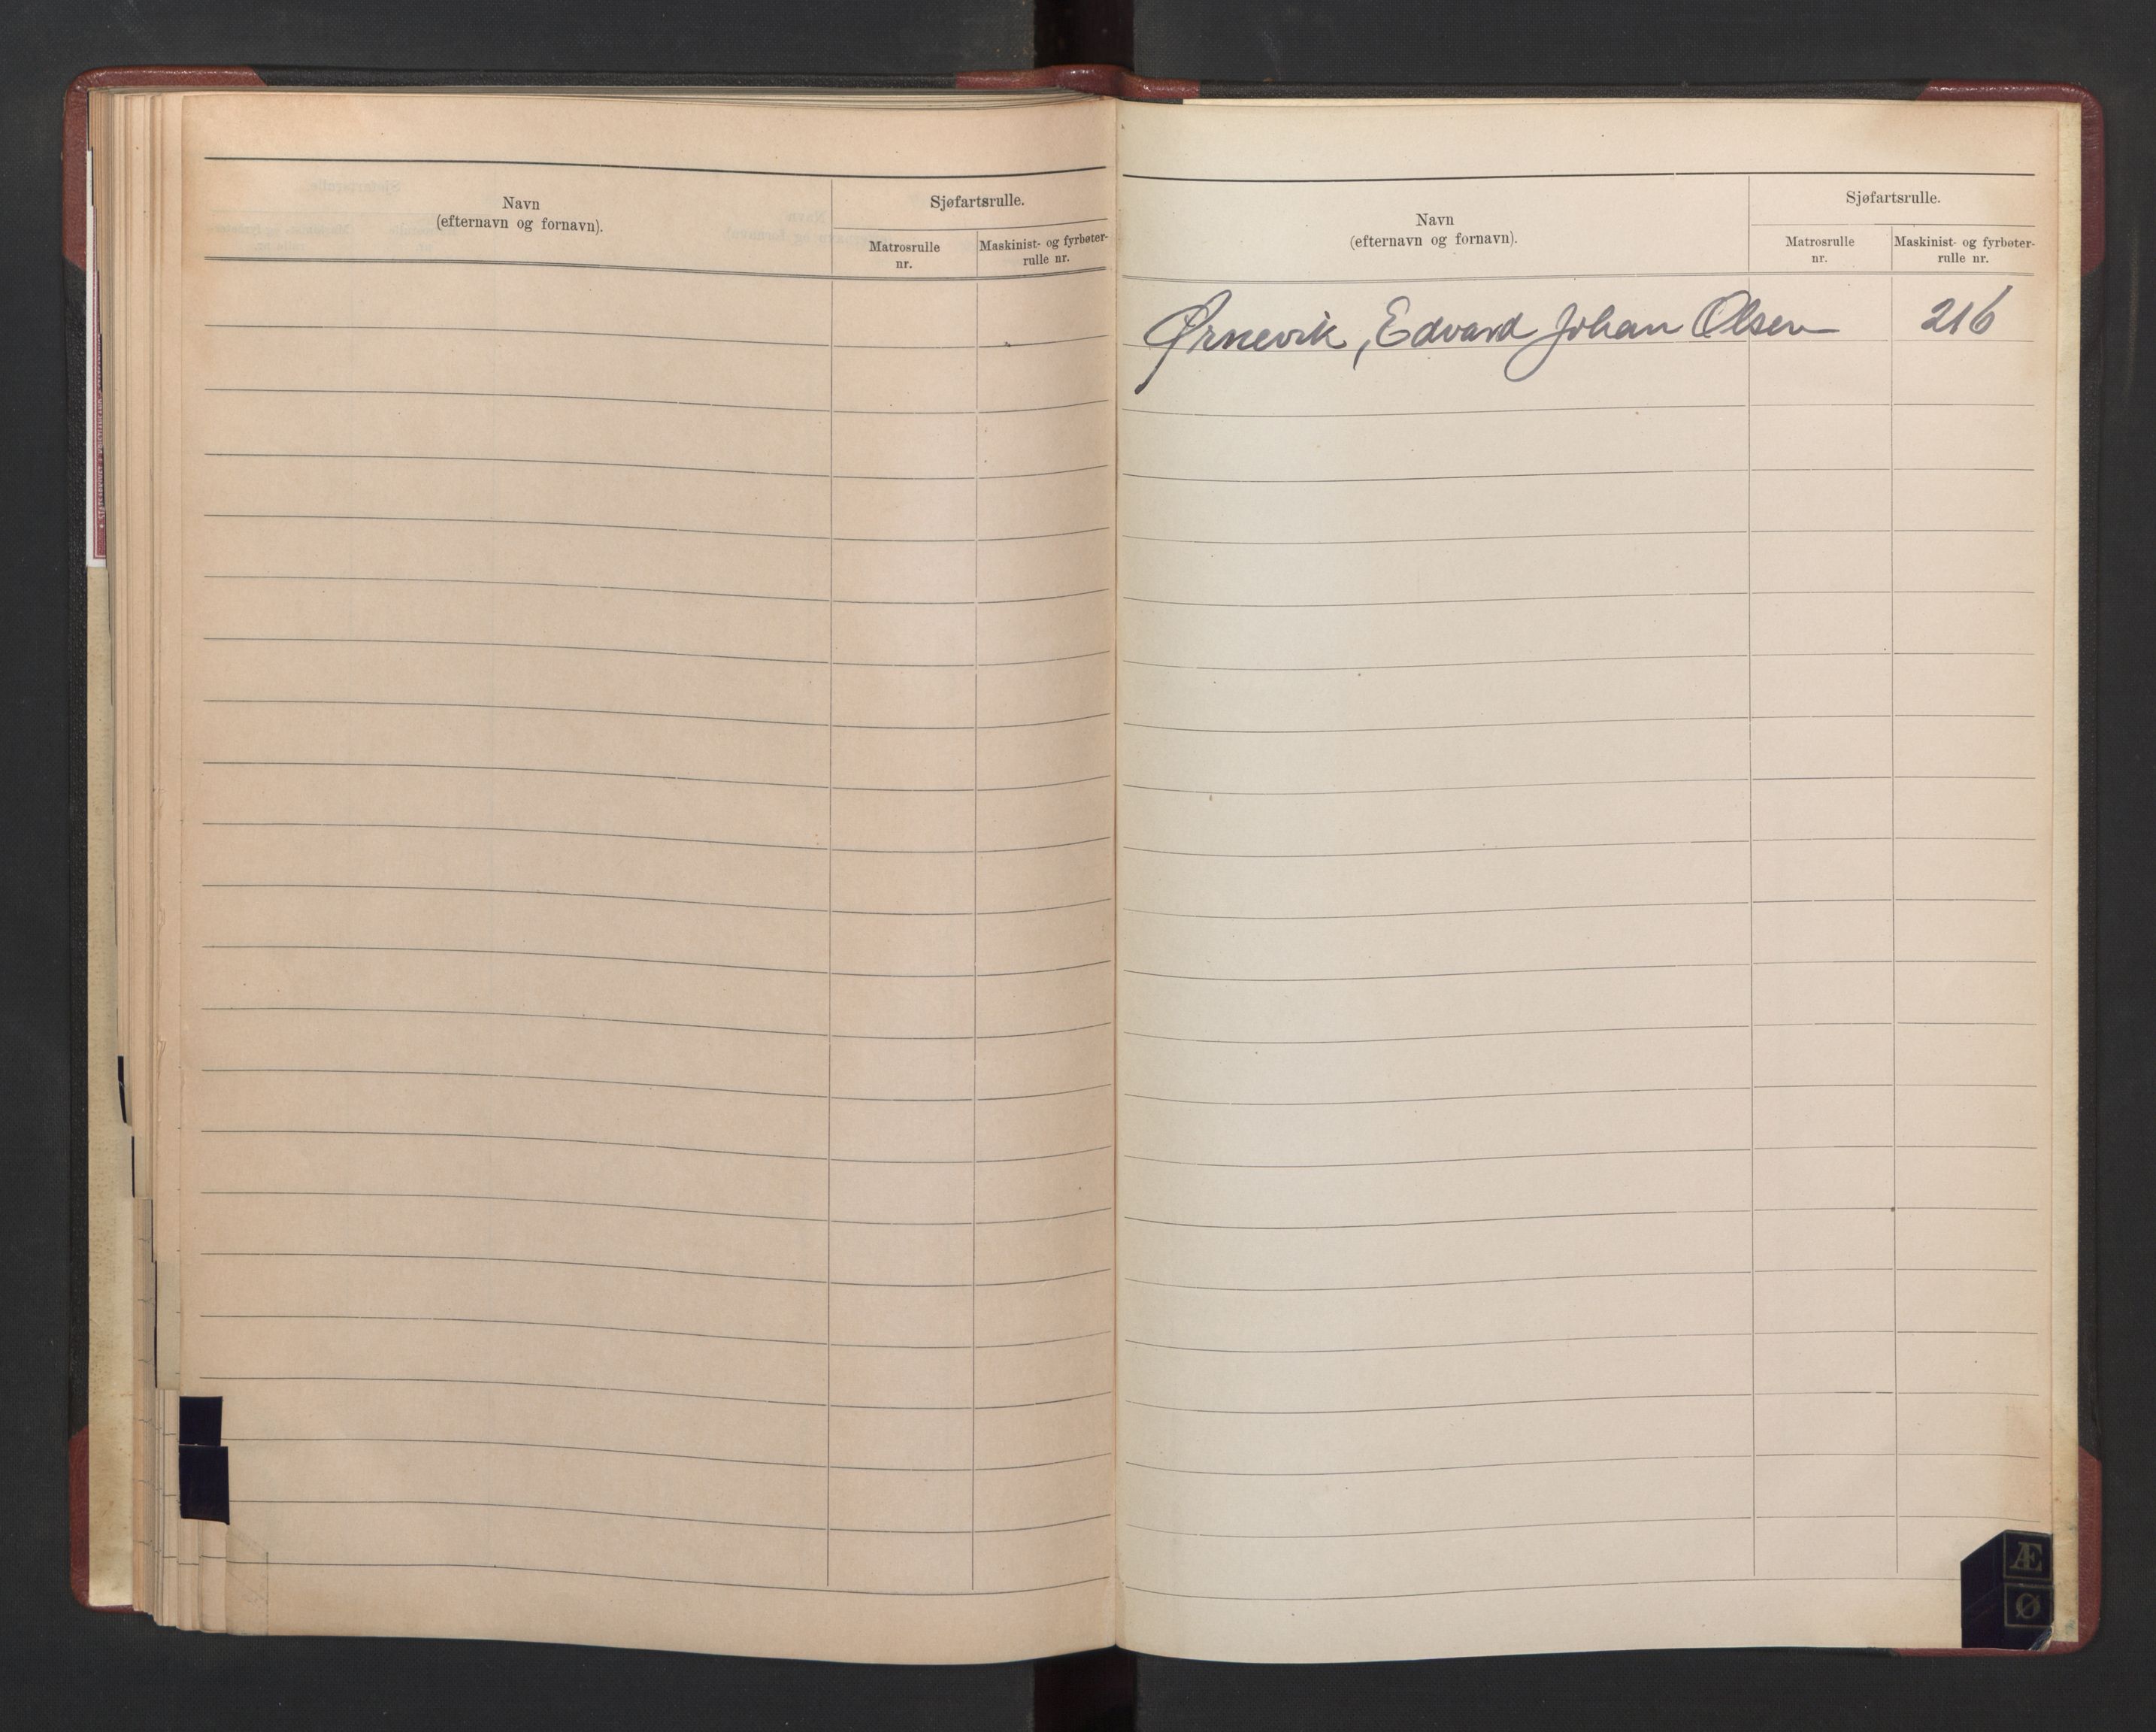 Navn
(efternavn og fornavn).
Sjøfartsrulle.
Matrosrulle
nr.
Maskinist- og fyrbøter-
rulle nr.
Navn
(efternavn og fornavn).
Sjøfartsrulle.
Matrosrulle
nr.
Maskinist- og fyrbøter-
rulle nr.
Ørnevik, Edvard Johan Olsen 216
Æ
Ø